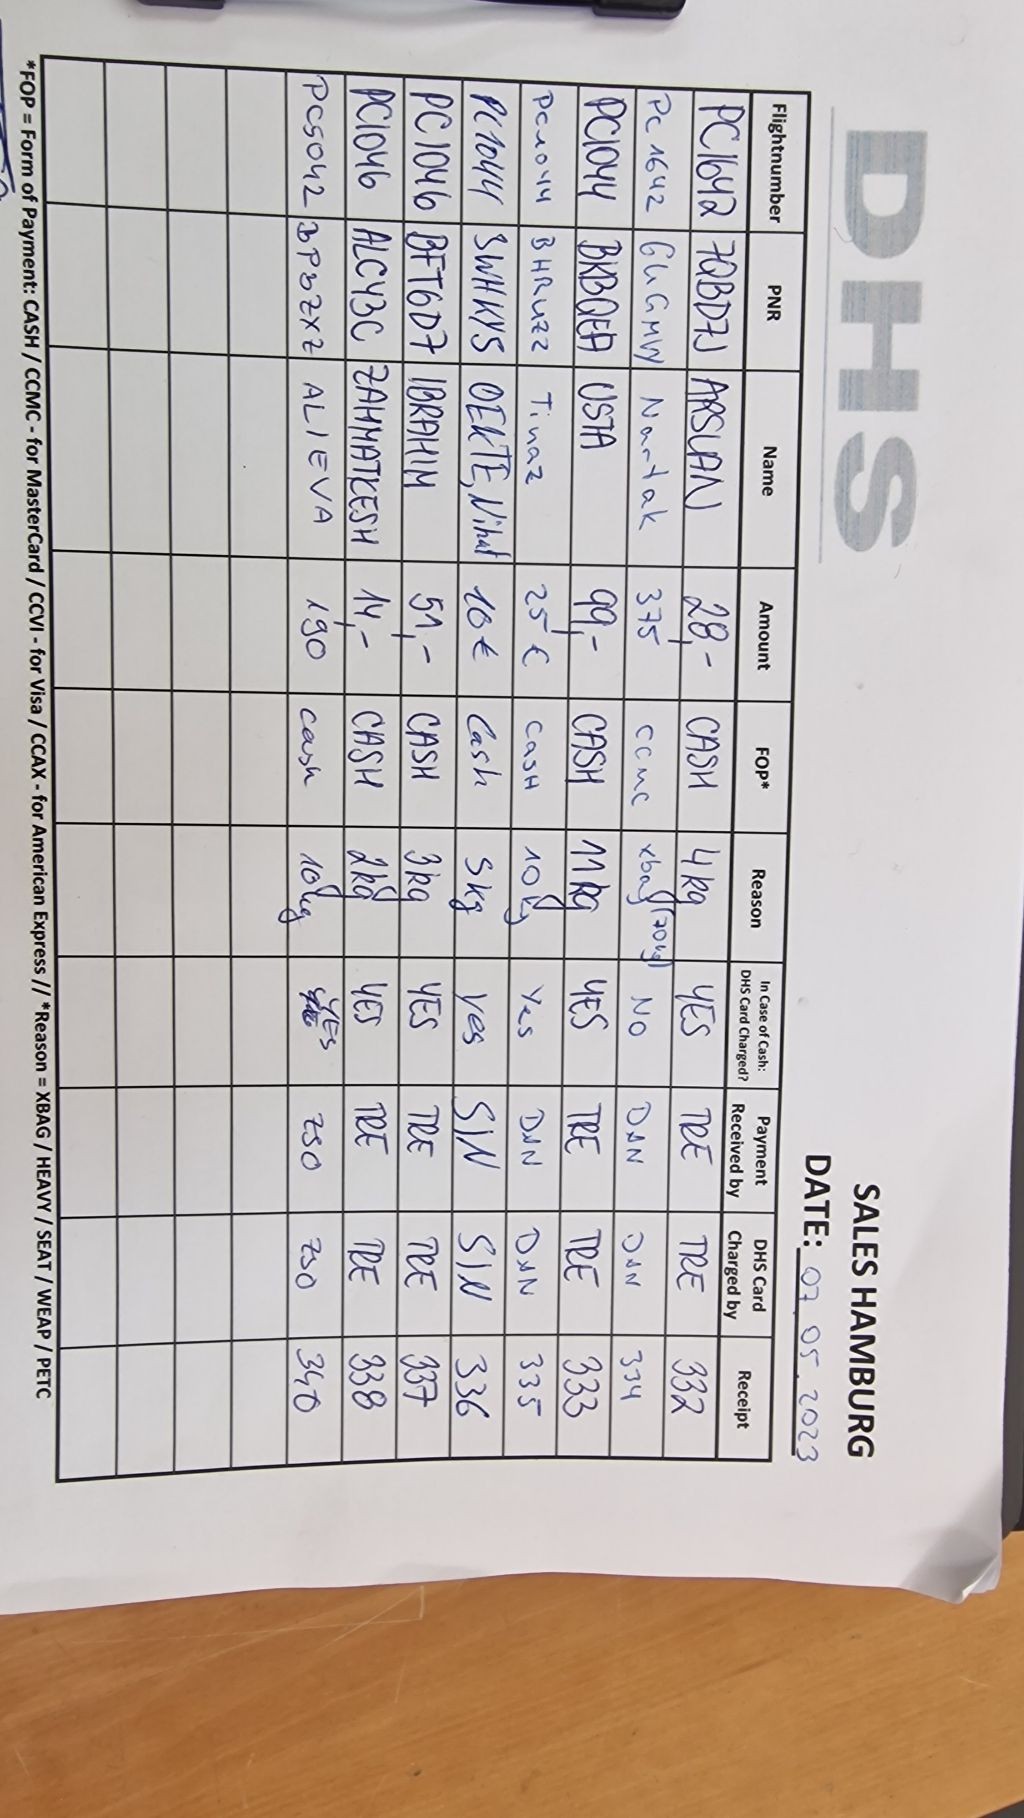 DHS
SALES HAMBURG
DATE: 07.05.2023
Flightnumber PNR Name Amount FOP* Reason In Case of Cash: DHS Card Charged? Payment Received by DHS Card Charged by Receipt
PC1642 7QBD7J ARSLAN 28,- CASH 4kg YES TRE TRE 332
PC1642 GUGMVV Nartak 375 CCMC xbag (70kg) NO DAN DAN 334
PC1044 BKBQEA USTA 99,- CASH 11kg YES TRE TRE 333
PC1044 BHRUZZ Tinaz 25 € CASH 10kg Yes DAN DAN 335
PC1044 3WHKYS OEKTE, Nihat 10 € Cash 5kg yes SIN SIN 336
PC1046 BFT6D7 IBRAHIM 51,- CASH 3kg YES TRE TRE 337
PC1046 ALC43C ZAHMATKESH 14,- CASH 2kg YES TRE TRE 338
PC5042 BPBZXZ ALIEVA 190 cash 10kg YES ZSO ZSO 340
*FOP = Form of Payment: CASH / CCMC - for MasterCard / CCVI - for Visa / CCAX - for American Express // *Reason = XBAG / HEAVY / SEAT / WEAP / PETC